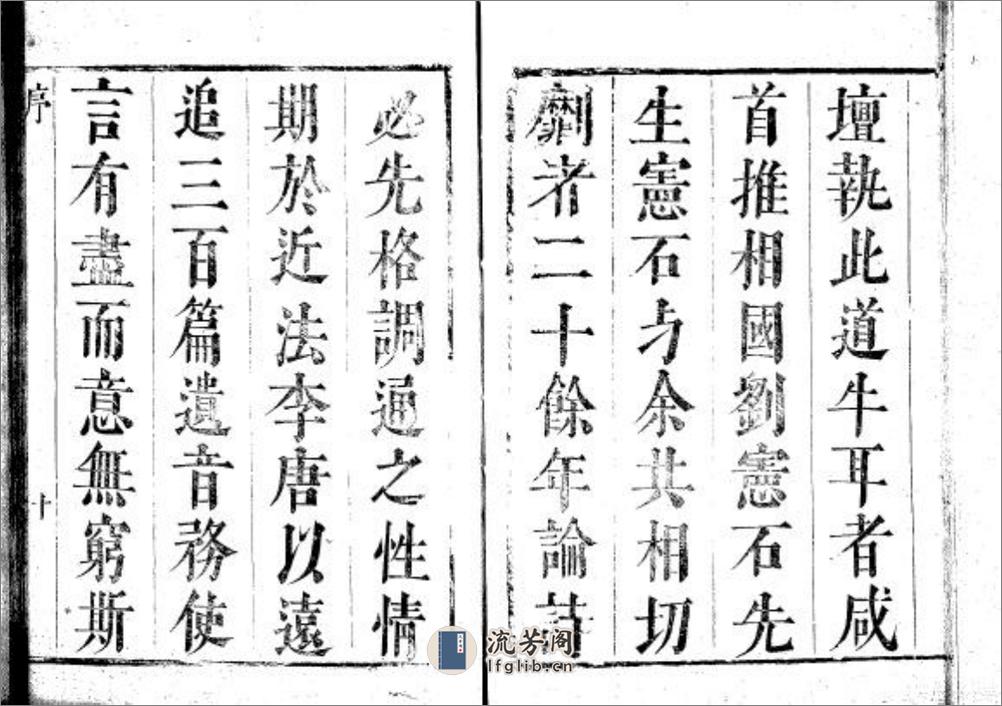 壇執此道牛耳者咸
首推相國劉憲石先
生憲石与余共相切
劘者二十餘年論詩
必先格調通之性情
期於近法李唐以遠
追三百篇遺音務使
言有盡而意無窮斯
序
十
流芳阁
lfglib.cn